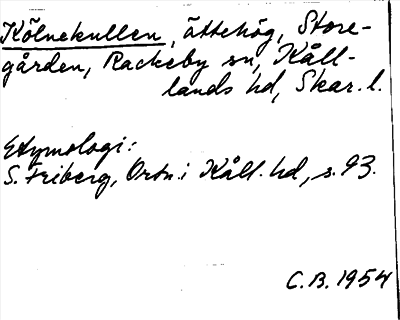 Kölnekullen, ättehög, Store-
gården, Rackeby sn, Kåll-
lands hd, Skar. l.
Etymologi:
S. Friberg, Ortn. i Kåll. hd, s. 93.
C.B. 1954